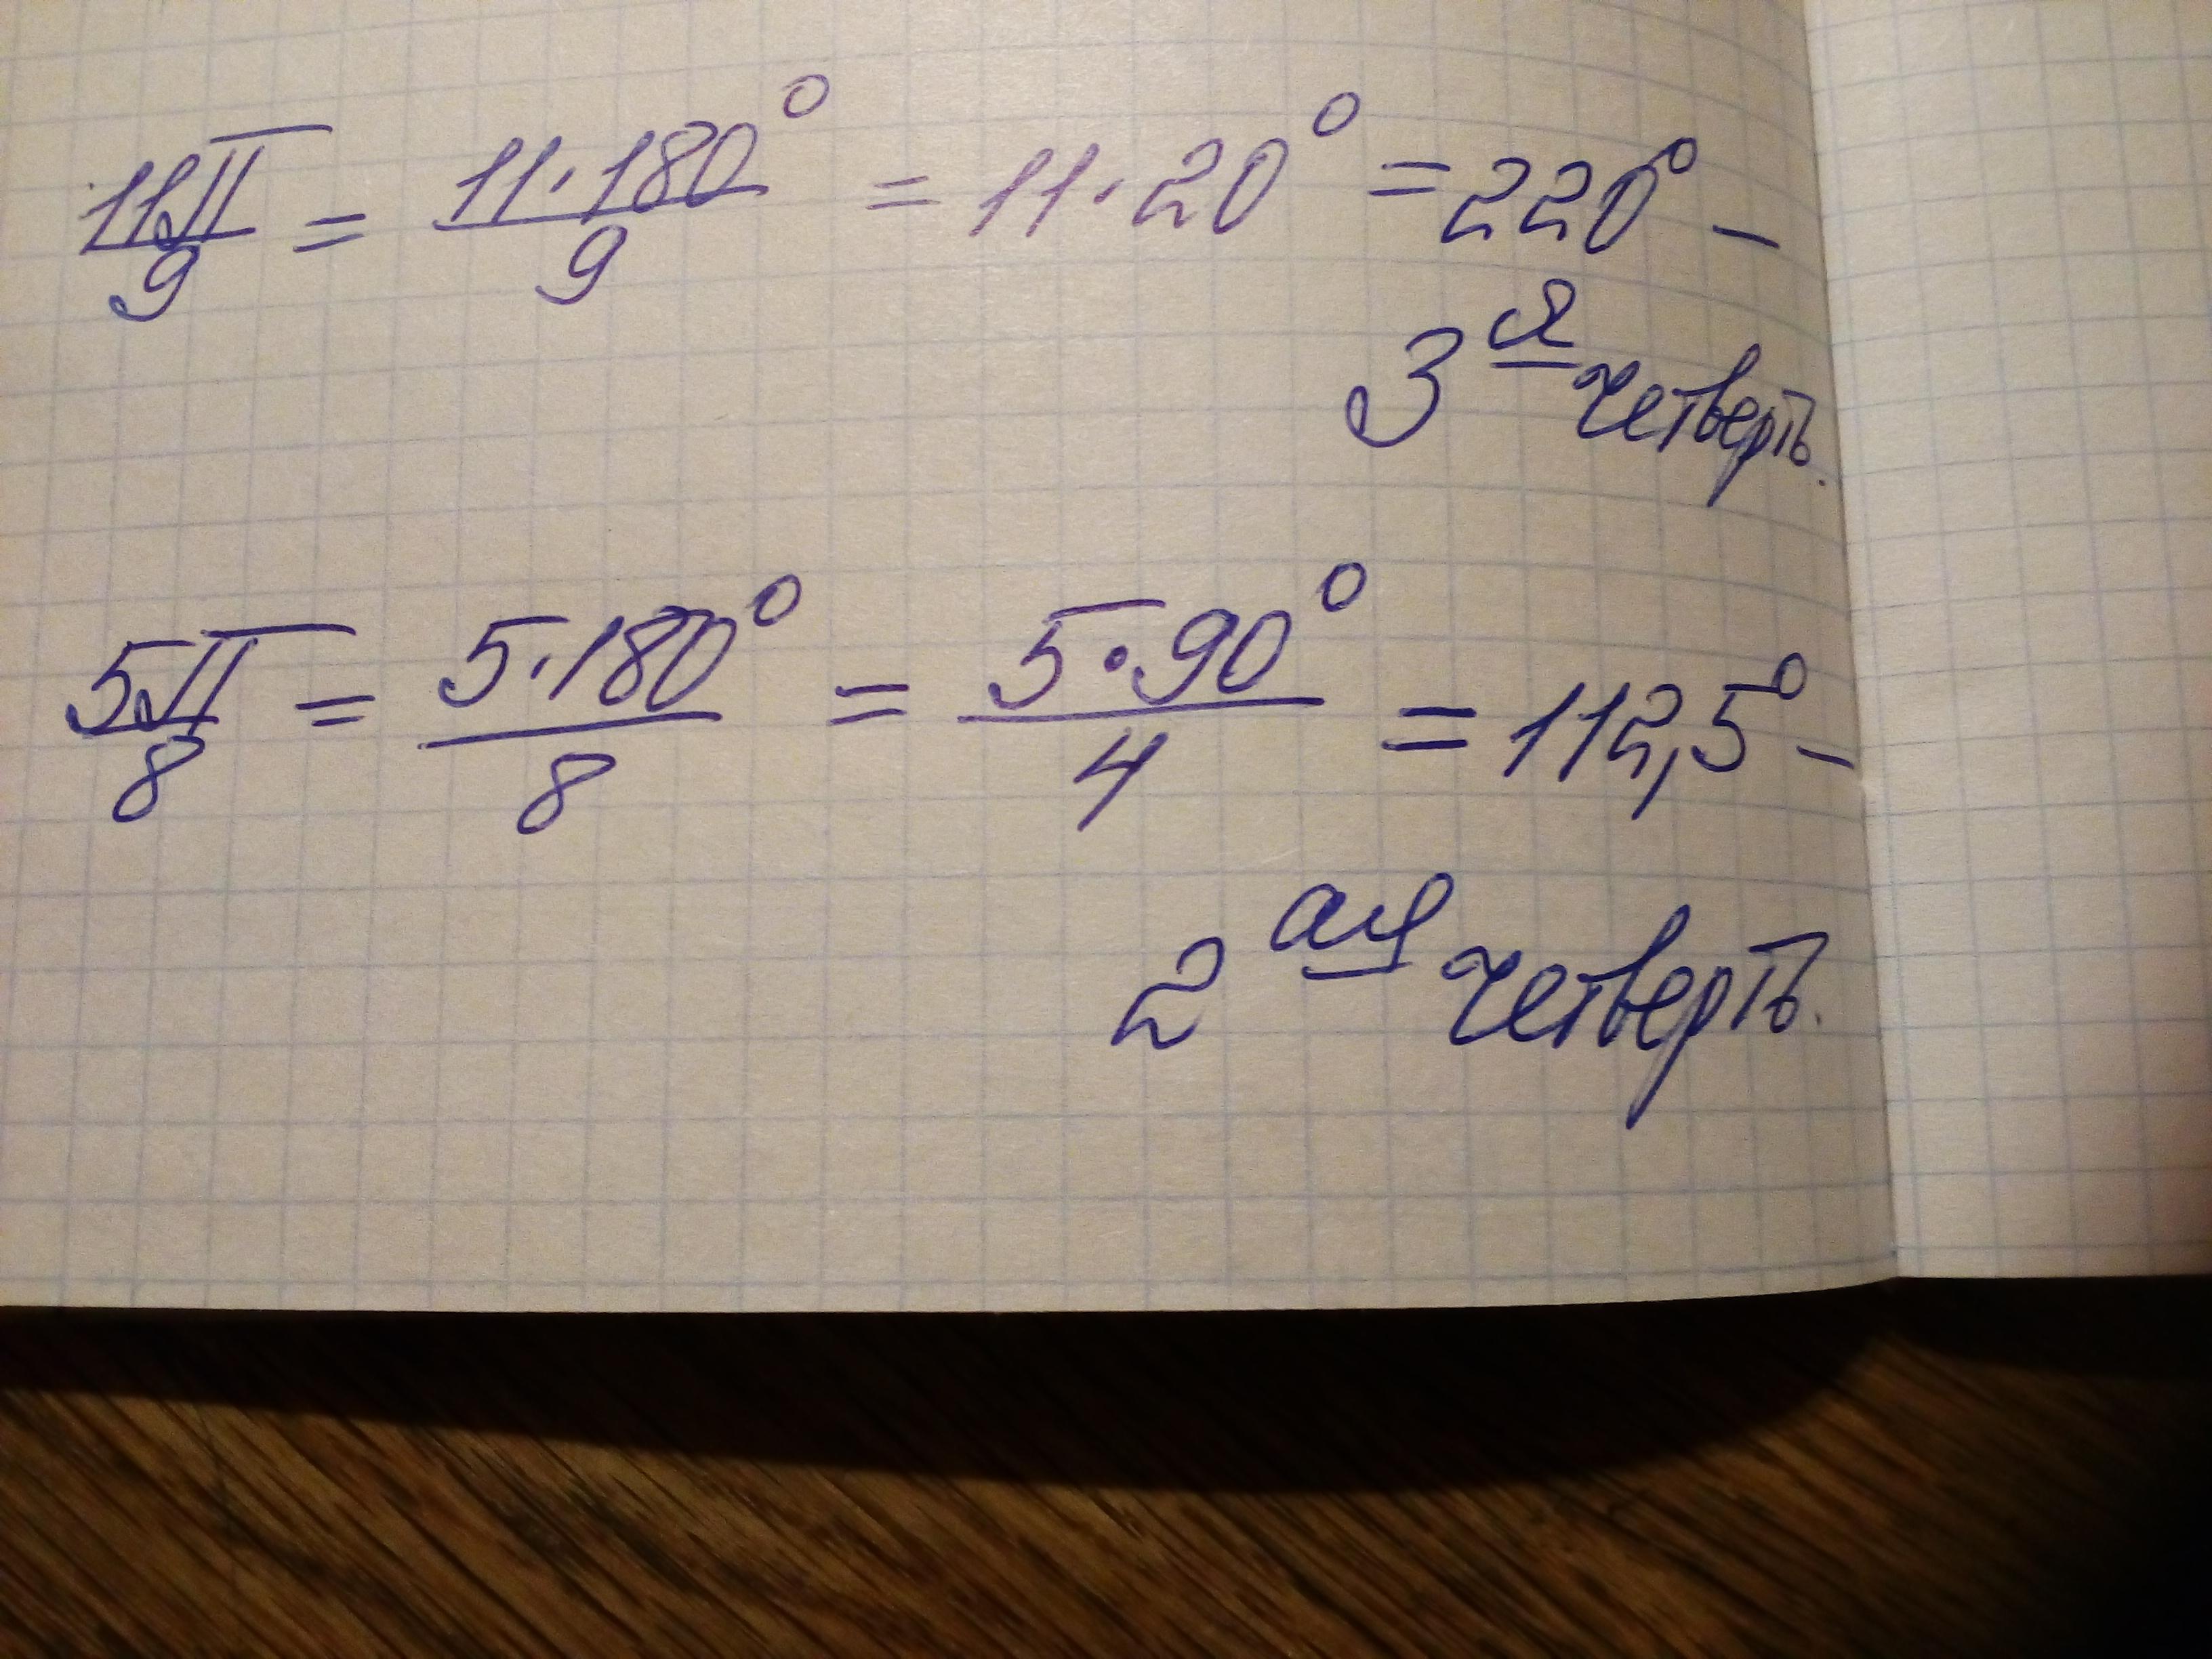 11π/9 = 11·180°/9 = 11·20° = 220° –
3я четверть.
5π/8 = 5·180°/8 = 5·90°/4 = 112,5° –
2ая четверть.